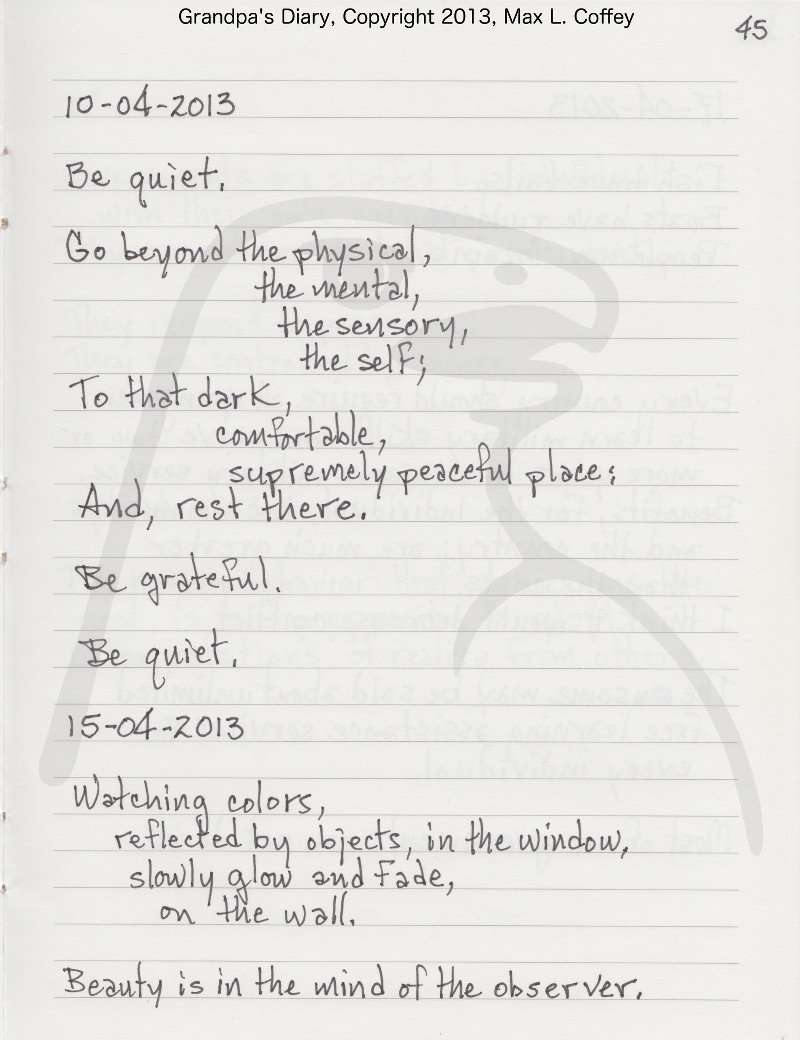 Grandpa's Diary, Copyright 2013, Max L. Coffey
45
10-04-2013
Be quiet.
Go beyond the physical,
the mental,
the sensory,
the self;
To that dark,
comfortable,
supremely peaceful place;
And, rest there.
Be grateful.
Be quiet.
15-04-2013
Watching colors,
reflected by objects, in the window,
slowly glow and fade,
on the wall.
Beauty is in the mind of the observer.